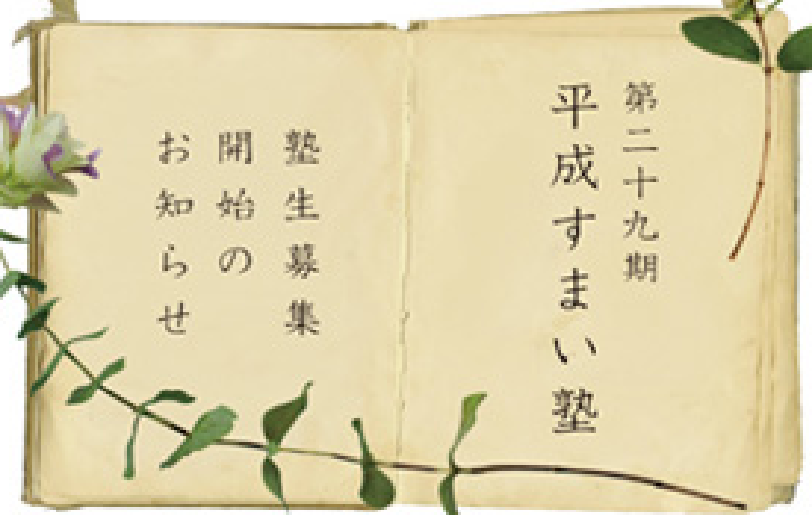 第二十九期
平成すまい塾
塾生募集
開始の
お知らせ